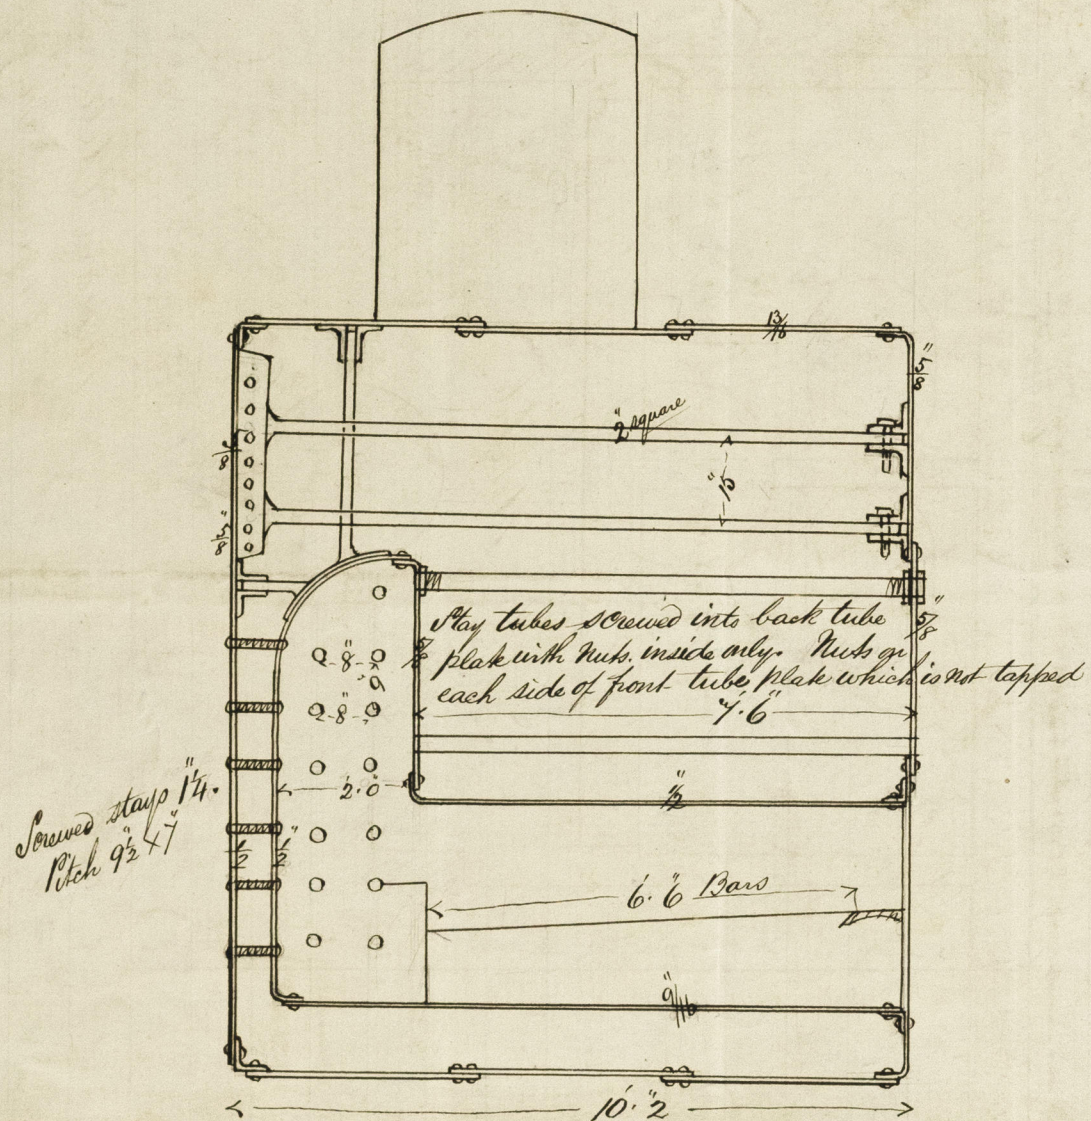 13/16"
5/8"
2" square
5/8
15"
5/8"
Stay tubes screwed into back tube
plate with Nuts. inside only. Nuts on
each side of front tube plate which is not tapped
5/8
5/8"
8"
9"
8"
7'.6"
2'.0"
1/2"
Screwed stays 1 1/4".
Pitch 9 1/2" x 7"
1/2
1/2"
6'.6" Bars
9/16"
10'.2"